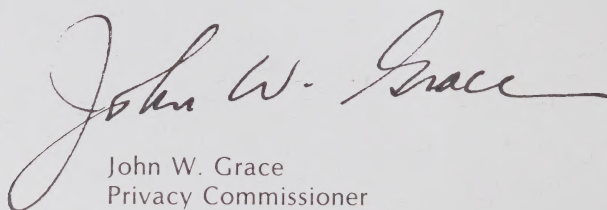 John W. Grace
John W. Grace
Privacy Commissioner